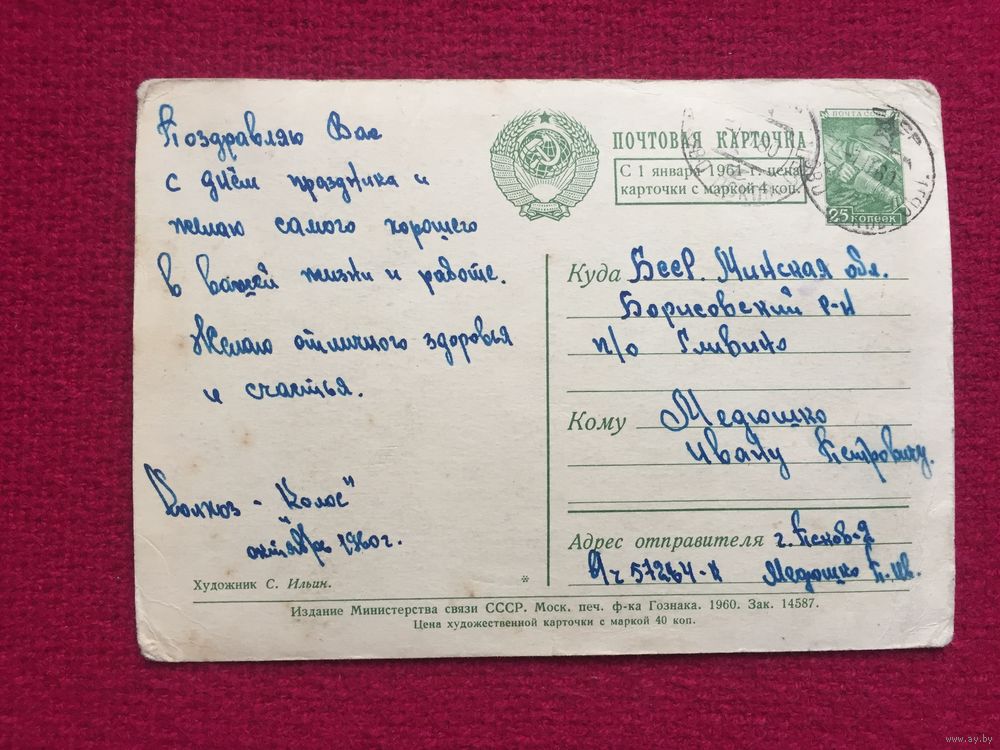 Поздравляю Вас
с днём праздника и
желаю самого хорошего
в вашей жизни и работе.
Желаю отличного здоровья
и счастья.
Колхоз - "Колос"
октябрь 1960 г.
Художник С. Ильин.
ПОЧТОВАЯ КАРТОЧКА
С 1 января 1961 г. цена
карточки с маркой 4 коп.
ПОЧТА СССР
25 КОПЕЕК
Куда Бсср. Минская обл.
Борисовский р-н
п/о Гливино
Кому Медюшко
Ивану Петровичу.
Адрес отправителя г. Псков-2
в/ч 57264-К Медюшко П. Ив.
*
Издание Министерства связи СССР. Моск. печ. ф-ка Гознака. 1960. Зак. 14587.
Цена художественной карточки с маркой 40 коп.
www.ay.by